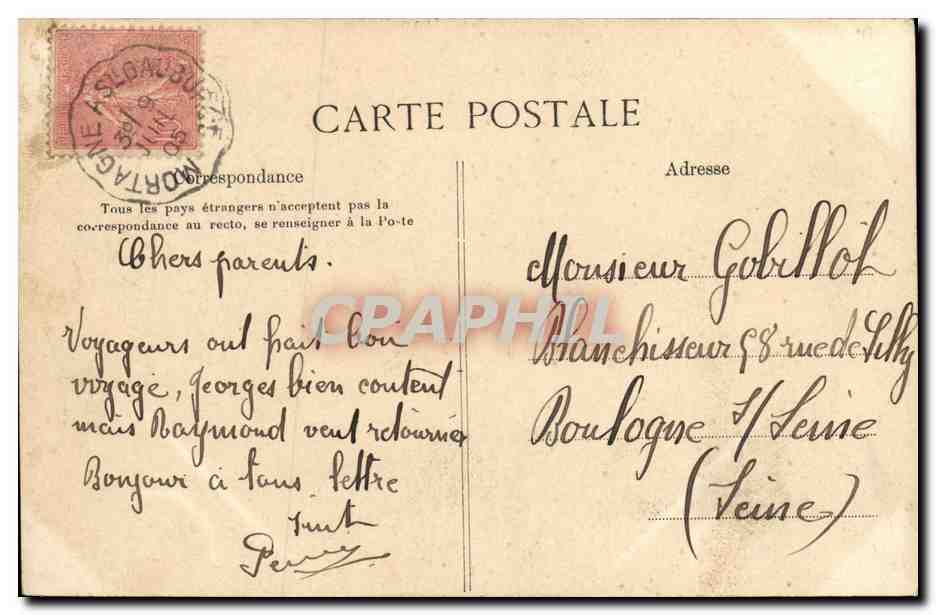 MORTAGNE A SLGAUBURGE
JUIN
05
CARTE POSTALE
Correspondance
Tous les pays étrangers n'acceptent pas la
correspondance au recto, se renseigner à la Poste
Chers parents.
Voyageurs ont fait bon
voyage, Georges bien content
mais Raymond veut retourner
Bonjour à tous lettre
suit
Adresse
Monsieur Gobillot
Blanchisseur 58 rue de Silly
Boulogne s/ Seine
(Seine)
CPAPHIL